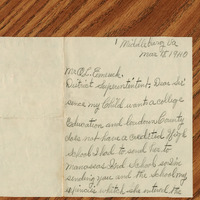 Middleburg Va
Mar 15 1940
Mr O.L. Emerick.
District Superintendent: Dear Sir
since my Child want a college
Education and Loudoun County
does not have a credited High
school I had to send her to
Manassas Ind School so I'm
sending you and the School my
expenses which she intend the